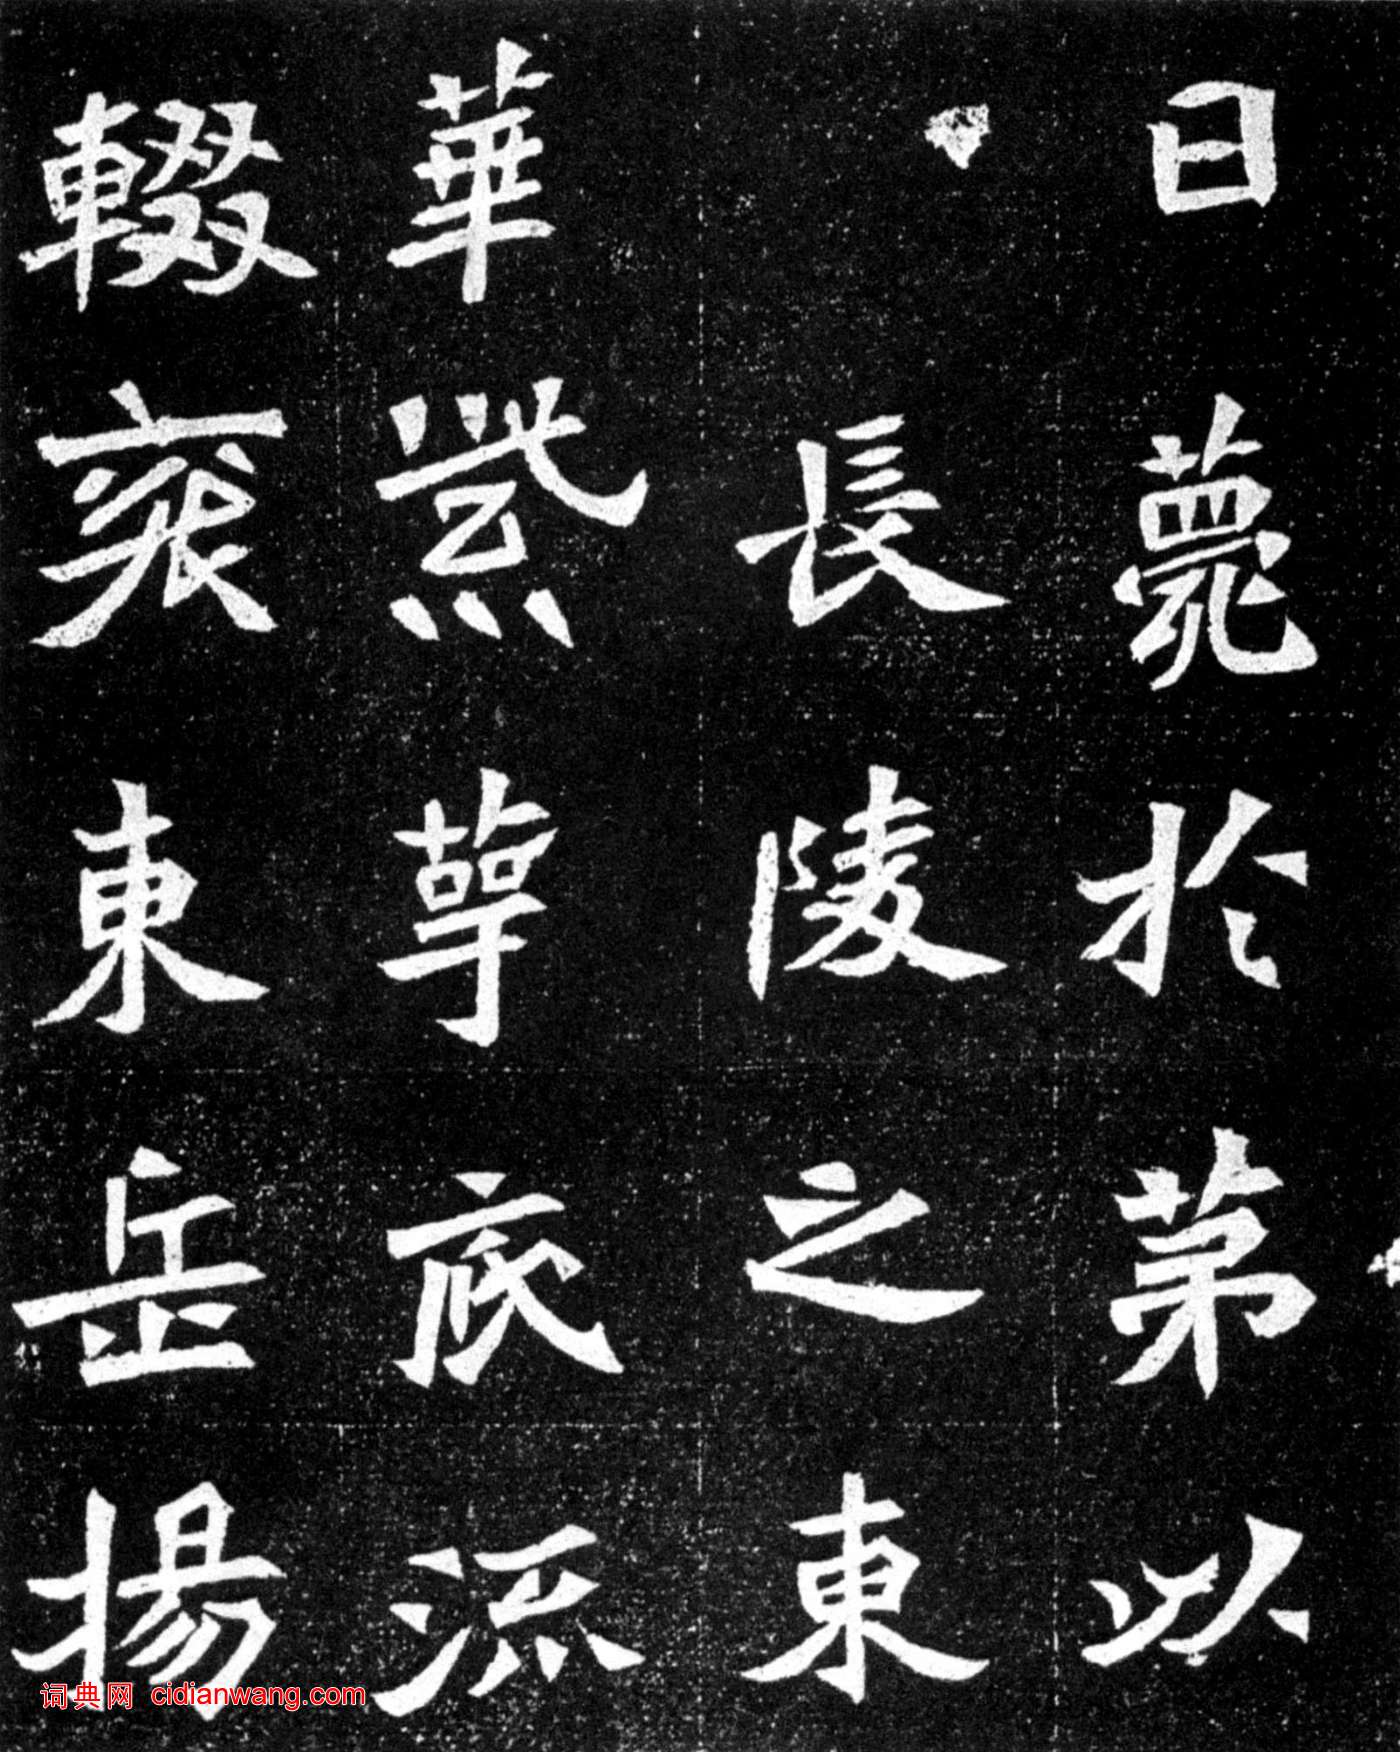 日薨於第以
長陵之東
華紫萼夜流
輟東岳揚
词典网 cidianwang.com